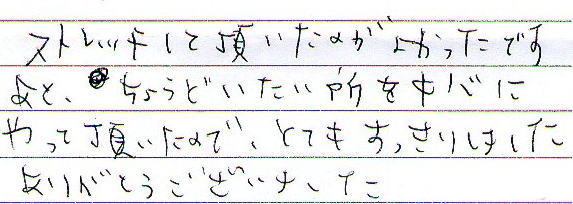 ストレッチして頂いたのがよかったです
あと、ちょうどいたい所を中心に
やって頂いたので、とてもすっきりしました
ありがとうございました